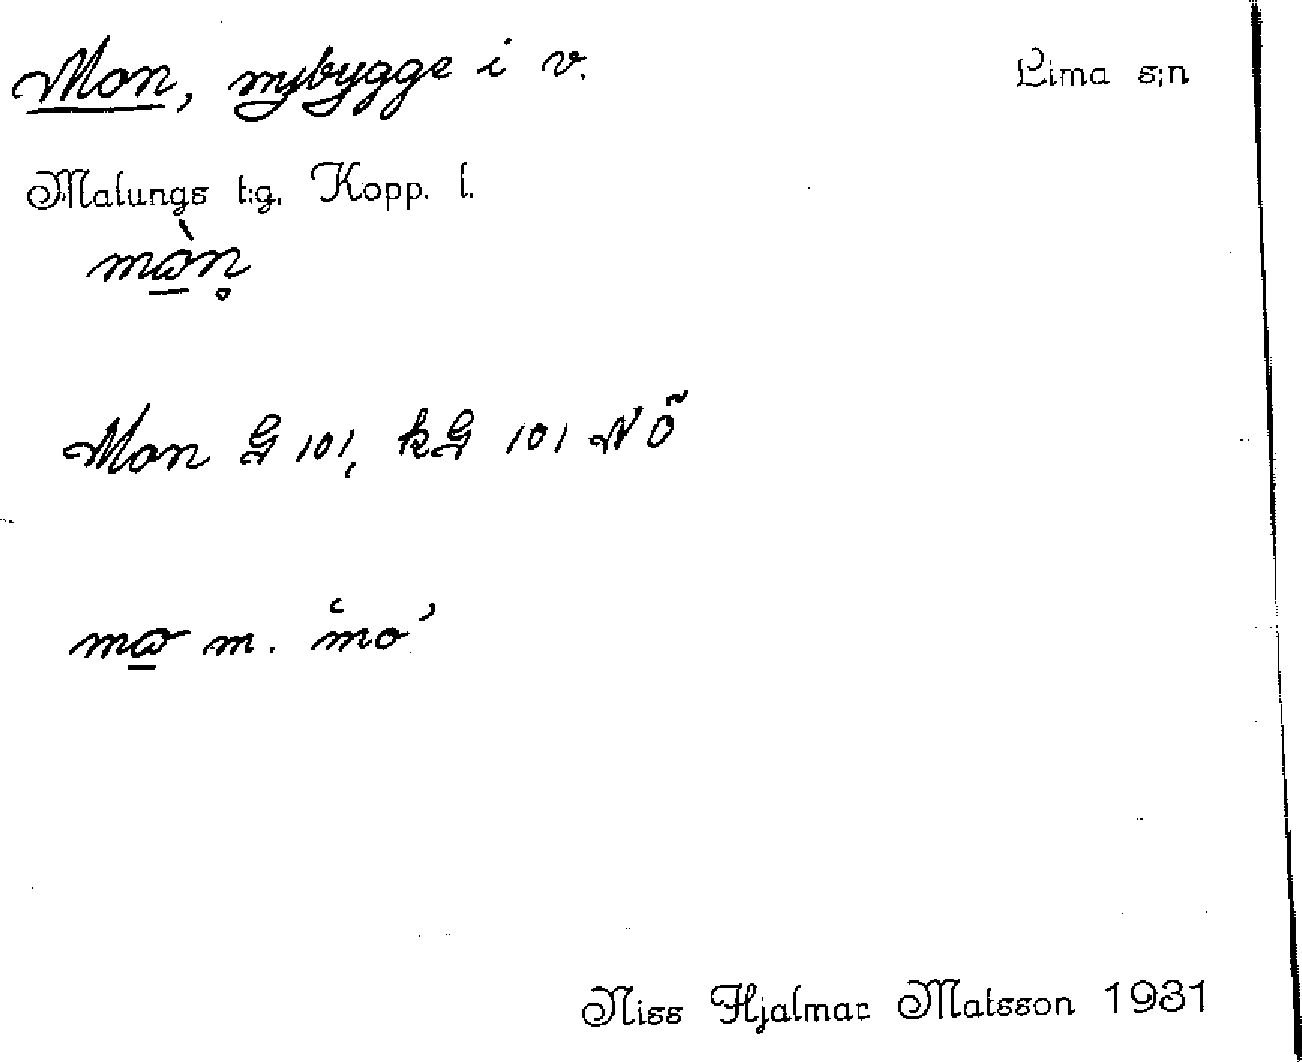 Mon, nybygge i v. Lima s:n
Malungs t:g. Kopp. l.
mɷ̀n̥
Mon G 101, kG 101 NÖ
mɷ m. mo
Niss Hjalmar Matsson 1931